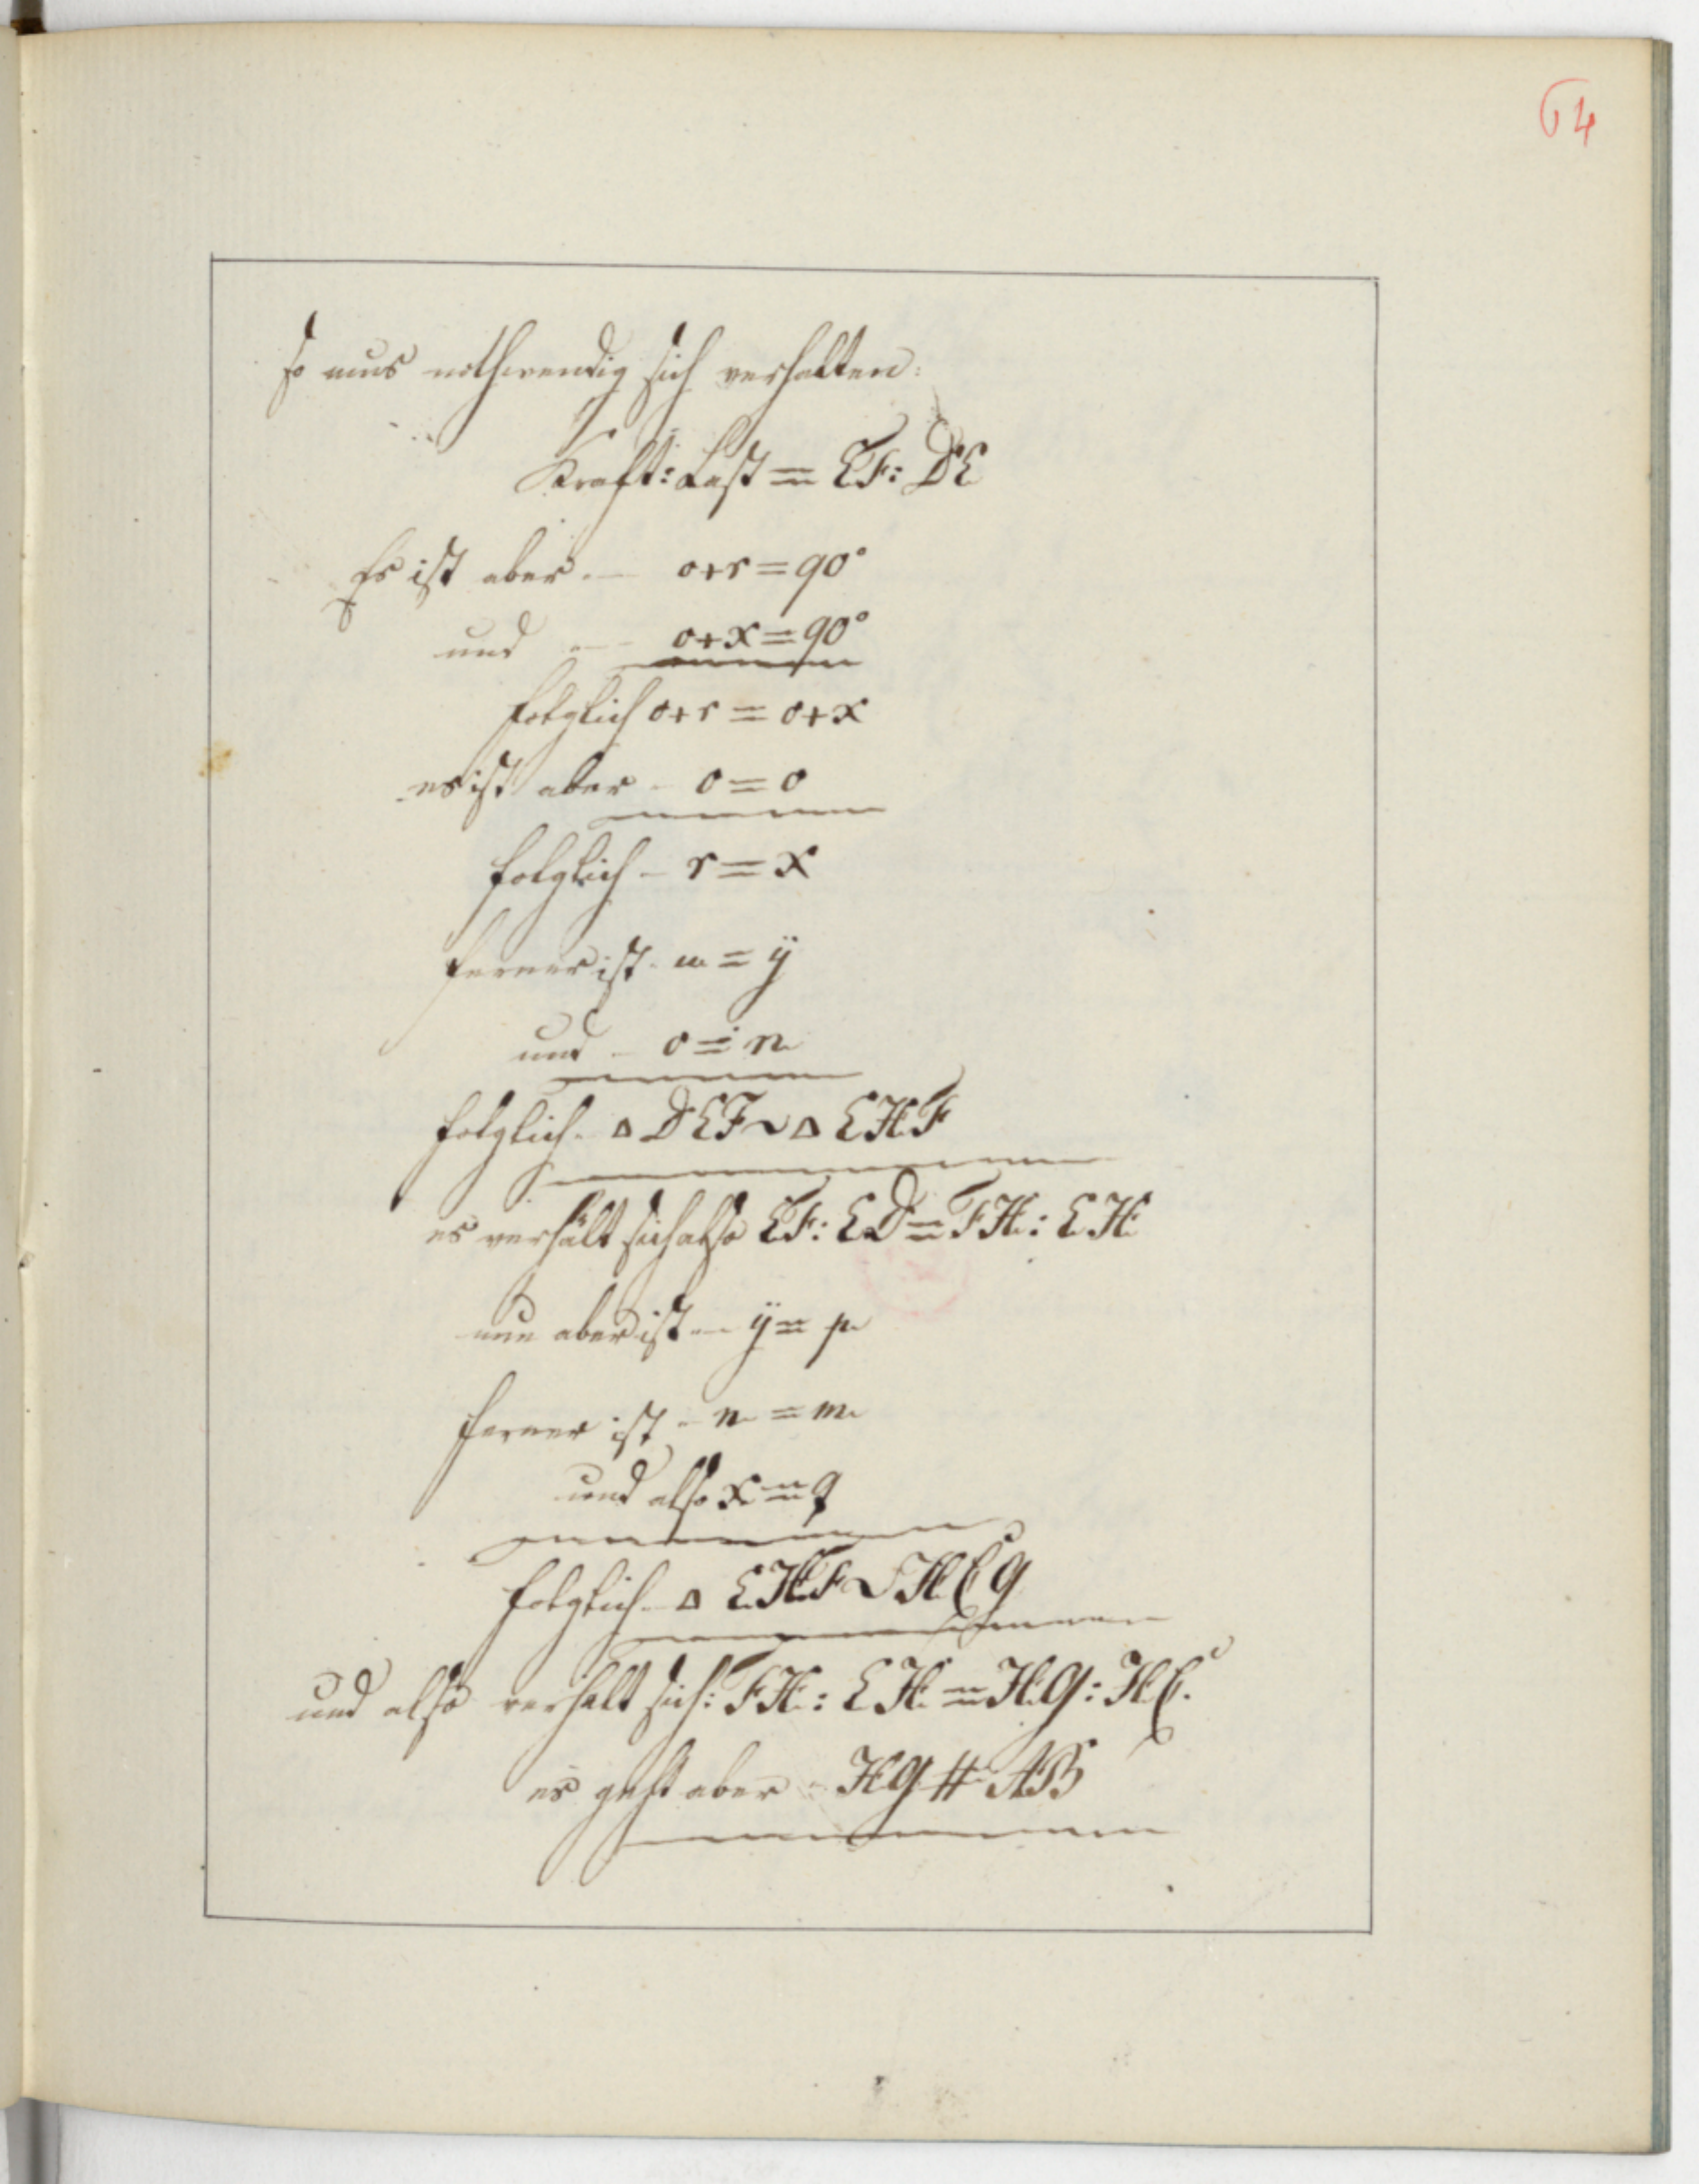 64
so mus nothwendig sich verhalten:
Kraft: Last = EF: DE
Es ist aber. — o+r=90°
und — o+x=90°
folglich o+r = o+x
es ist aber - o=o
folglich - r=x
ferner ist - m = ÿ
und - o = n
folglich - △ DEF ~ △ EHF
es verhält sich also EF: ED = FH: EH
nun aber ist - ÿ = p
ferner ist - n = m
und also x = q
folglich - △ EHF ~ HCG
und also verhalt sich: FH: EH = HG: HC.
es geht aber - HG # AB